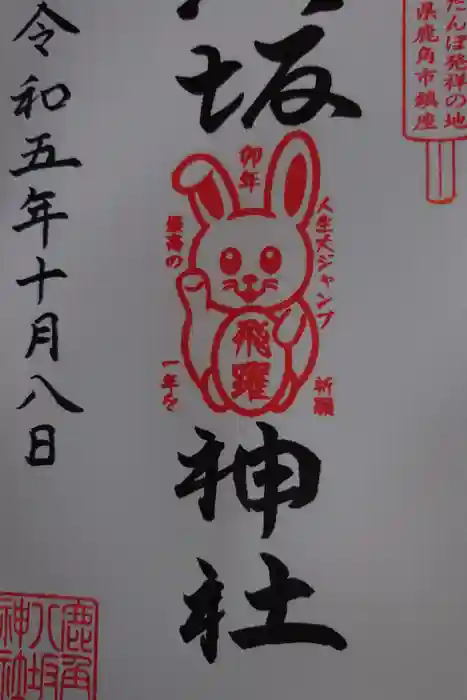 たんぽ発祥の地
県鹿角市鎮座
坂
神社
卯年
人生大ジャンプ
祈願
最高の
一年を
飛躍
令和五年十月八日
鹿角
八坂
神社